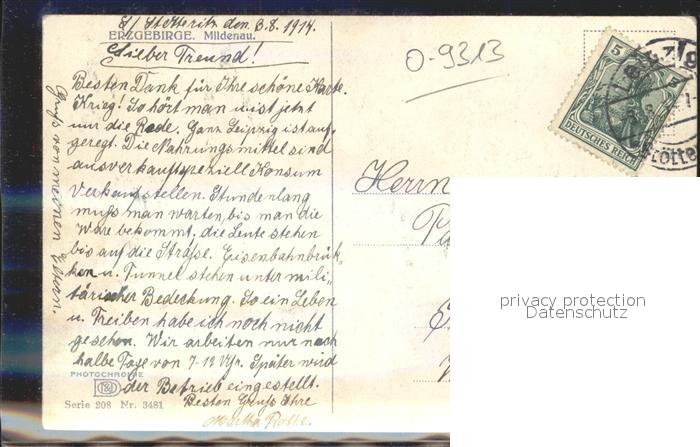 L/ Stötteritz den 3.8.1914.
ERZGEBIRGE. Mildenau.
Lieber Freund!
Besten Dank für Ihre schöne Karte.
Krieg! So hört man u. ist jetzt
nur die Rede. Ganz Leipzig ist auf-
geregt. Die Nahrungsmittel sind
ausverkauft speziell Konsum
Verkaufstellen. Stundenlang
muß man warten, bis man die
Ware bekommt. die Leute stehen
bis auf die Straße. Eisenbahnbrük-
ken u. Tunnel stehen unter mili-
tärischer Bedeckung. So ein Leben
u. Treiben habe ich noch nicht
gesehen. Wir arbeiten nur noch
halbe Tage von 7-12 Uhr. Später wird
der Betrieb eingestellt.
Besten Gruß Ihre
Martha Rothe.
Gruß von meinen Eltern.
PHOTOCHROMIE
T&D
Serie 208 Nr. 3481
O-9313
5
DEUTSCHES REICH
Herrn
privacy protection
Datenschutz